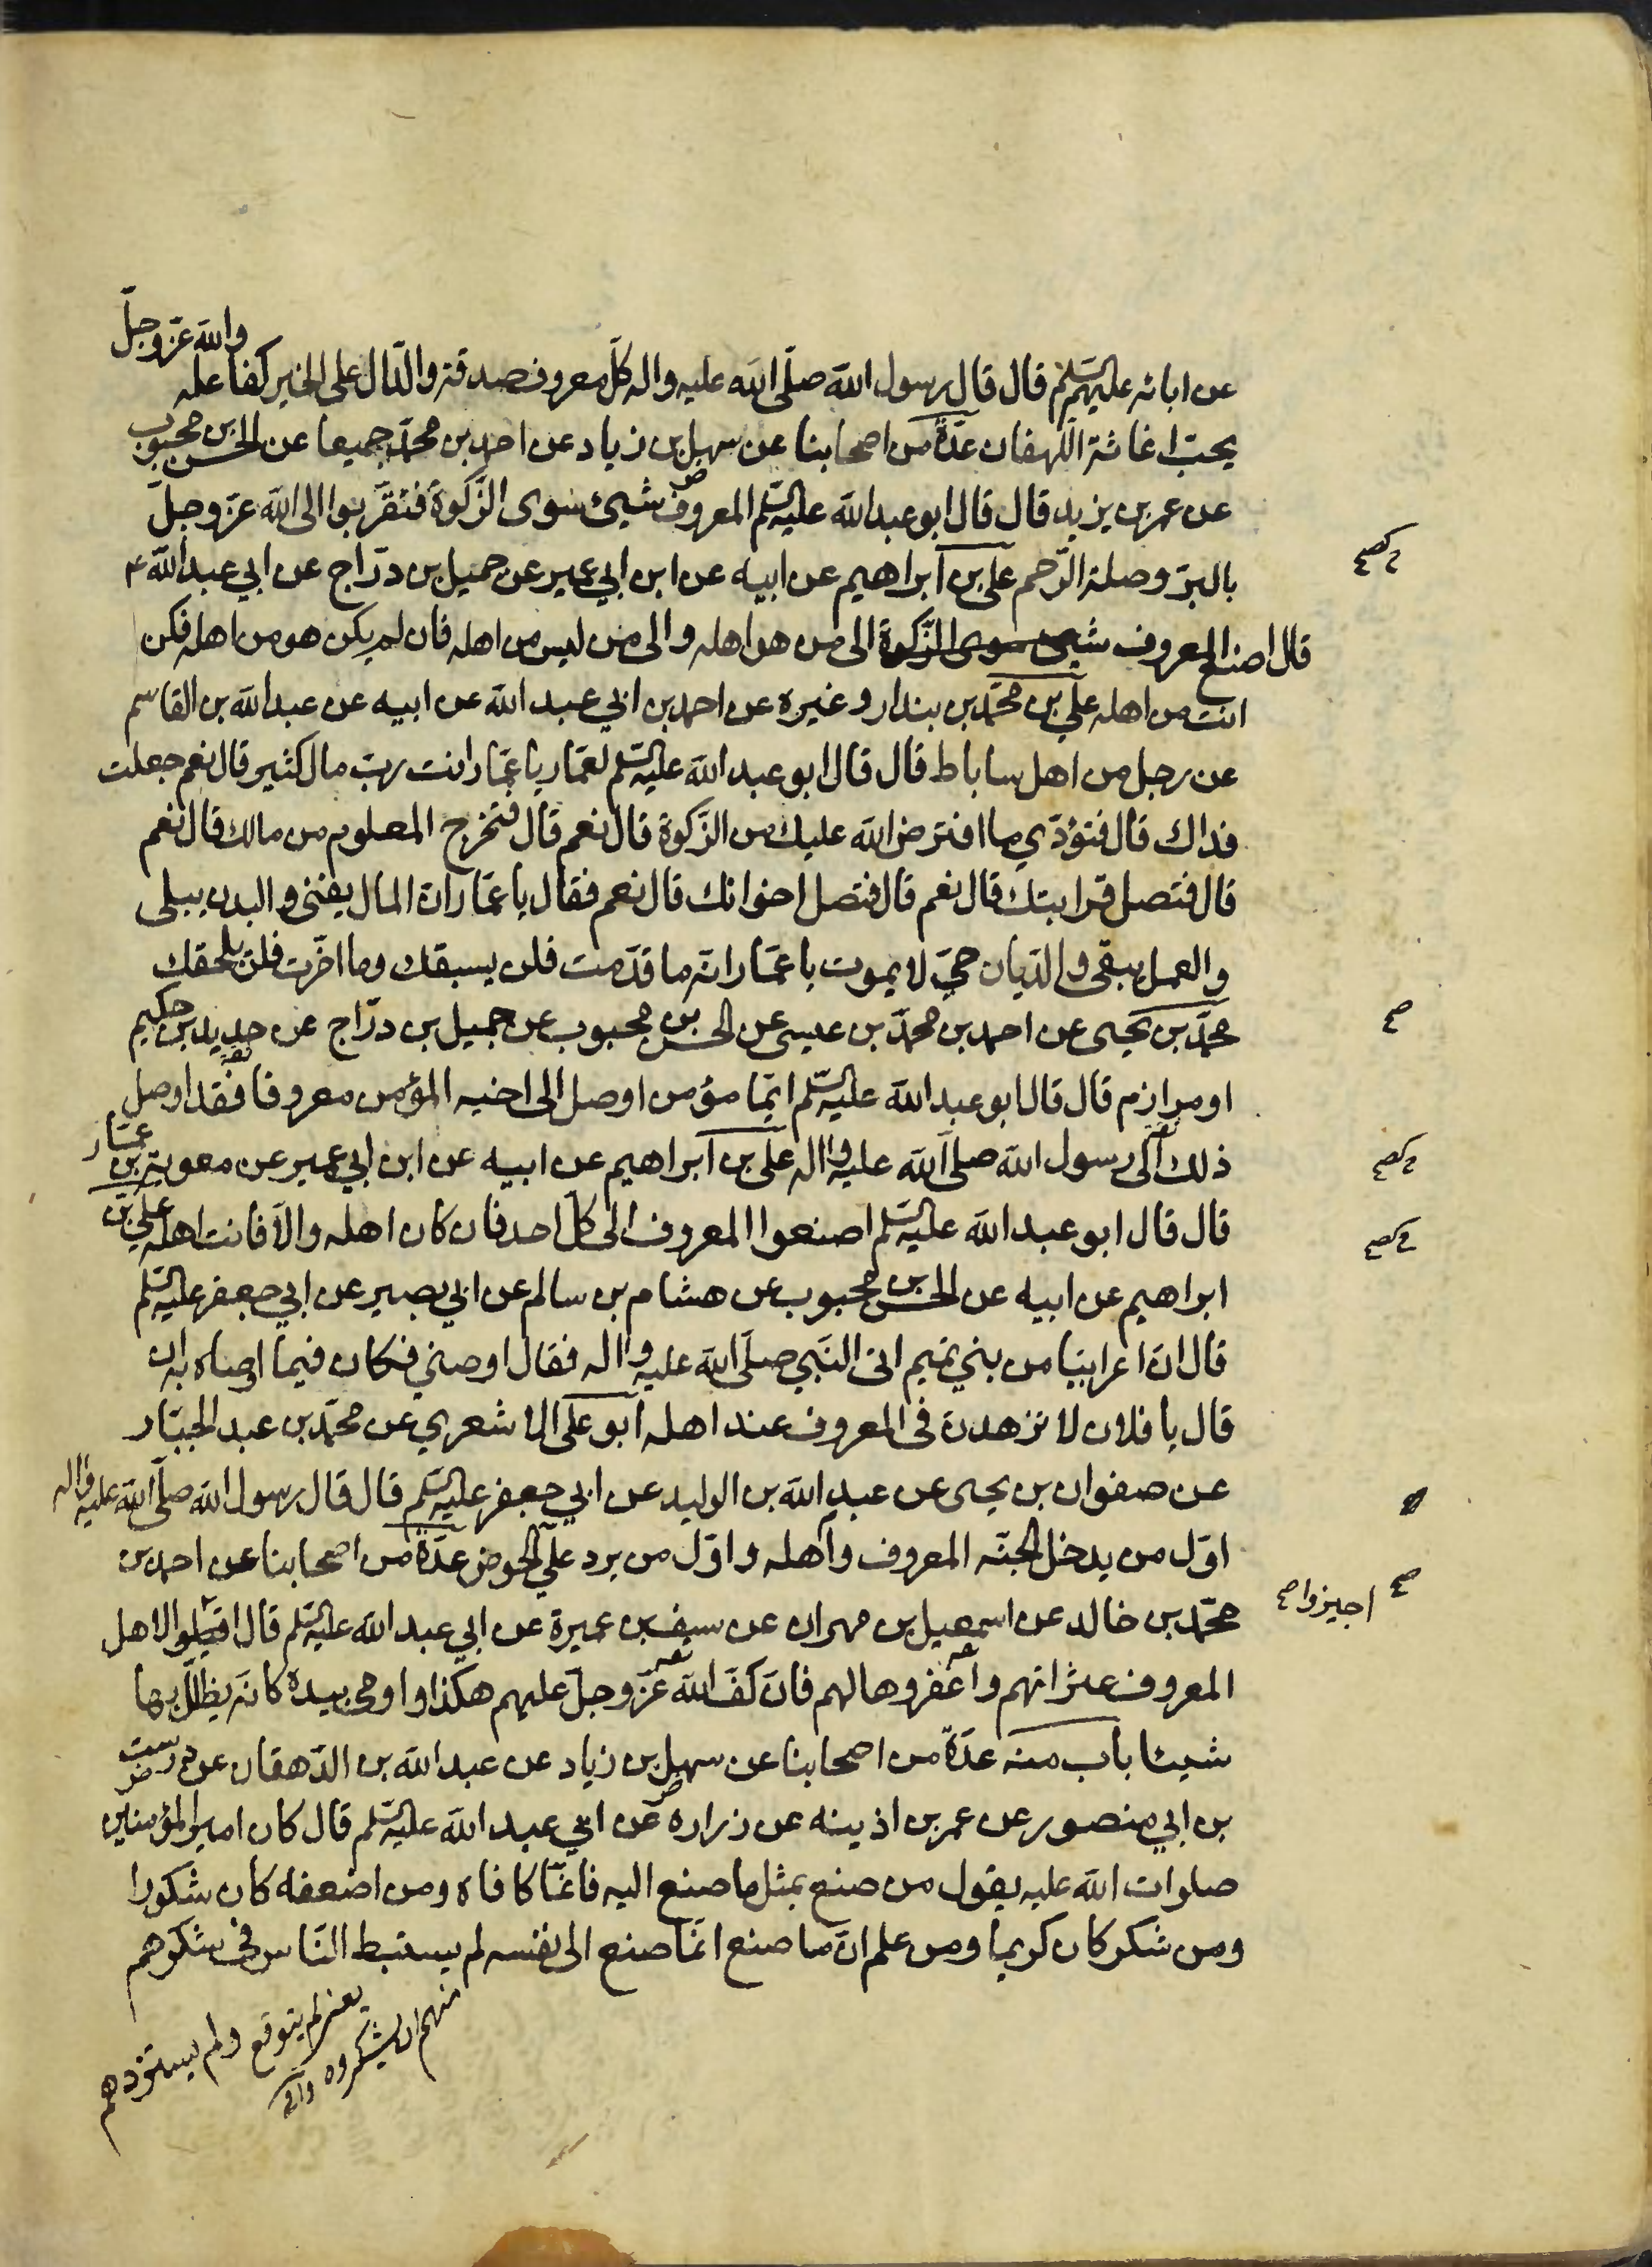 والله عزّ وجلّ
عن ابائه عليهم السلم قال قال رسول الله صلّى الله عليه واله كلّ معروف صدقة والدّال على الخير كفاعله
يحبّ اغاثة اللّهفان عدّة من اصحابنا عن سهل بن زياد عن احمد بن محمّد جميعا عن الحسن بن محبوب
عن عمر بن يزيد قال قال ابو عبدالله عليه السّلم المعروف شيئ سوى الزّكوة فتقرّبوا الى الله عزّ وجلّ
بالبرّ وصلة الرّحم علي بن ابراهيم عن ابيه عن ابن ابي عمير عن جميل بن درّاج عن ابي عبدالله ع
قال اصنع المعروف شيئ سوى الزّكوة الى من هو اهله والى من ليس من اهله فان لم يكن هو من اهله فكن
انت من اهله علي بن محمّد بن بندار وغيره عن احمد بن ابي عبد الله عن ابيه عن عبدالله بن القاسم
عن رجل من اهل ساباط قال قال ابو عبد الله عليه السّلم لعمّار يا عمّار انت ربّ مال كثير قال نعم جعلت
فداك قال فتؤدّي ما افترض الله عليك من الزّكوة قال نعم قال فتخرج المعلوم من مالك قال نعم
قال فتصل قرابتك قال نعم قال فتصل اخوانك قال نعم فقال يا عمّار انّ المال يفنى والبدن يبلى
والعمل يبقى والدّيان حيّ لا يموت يا عمّار انّه ما قدّمت فلن يسبقك وما اخّرت فلن يلحقك
محمّد بن يحيى عن احمد بن محمّد بن عيسى عن الحسن بن محبوب عن جميل بن درّاج عن حديد بن حكيم
او مرازم قال قال ابو عبدالله عليه السّلم ايّما مؤمن اوصل الى اخيه المؤمن معروفا فقد اوصل
ذلك الى رسول الله صلى الله عليه واله علي بن ابراهيم عن ابيه عن ابن ابي عمير عن معوية بن عمّار
قال قال ابو عبد الله عليه السّلم اصنعوا المعروف الى كلّ احد فان كان اهله والّا فانت اهله علي بن
ابراهيم عن ابيه عن الحسن بن محبوب عن هشام بن سالم عن ابي بصير عن ابي جعفر عليه السّلم
قال انّ اعرابيّا من بني تميم اتى النّبي صلّى الله عليه واله فقال اوصني فكان فيما اوصاه به ان
قال يا فلان لا تزهدنّ في المعروف عند اهله ابو علي الاشعري عن محمّد بن عبد الجبّار
عن صفوان بن يحيى عن عبدالله بن الوليد عن ابي جعفر عليه السّلم قال قال رسول الله صلّى الله عليه واله
اوّل من يدخل الجنّه المعروف واهله واوّل من يرد عليّ الحوض عدّة من اصحابنا عن احمد بن
محمّد بن خالد عن اسمعيل بن مهران عن سيف بن عميرة عن ابي عبد الله عليه السّلم قال اقيلوا لاهل
اجيزوا صح
المعروف عثراتهم واغفروها لهم فانّ كفّ الله عزّ وجلّ عليهم هكذا واومى بيده كانّه يظلّل بها
شيئا باب منه عدّة من اصحابنا عن سهل بن زياد عن عبد الله بن الدّهقان عن درست
بن ابي منصور عن عمر بن اذينه عن زراره عن ابي عبد الله عليه السّلم قال كان امير المؤمنين
صلوات الله عليه يقول من صنع بمثل ما صنع اليه فانّما كافاه ومن اضعفه كان شكورا
ومن شكر كان كريما ومن علم انّ ما صنع انّما صنع الى نفسه لم يستبط النّاس في شكرهم
يعنى لم يتوقع ولم يستزدهم
منهم ان يشكروه